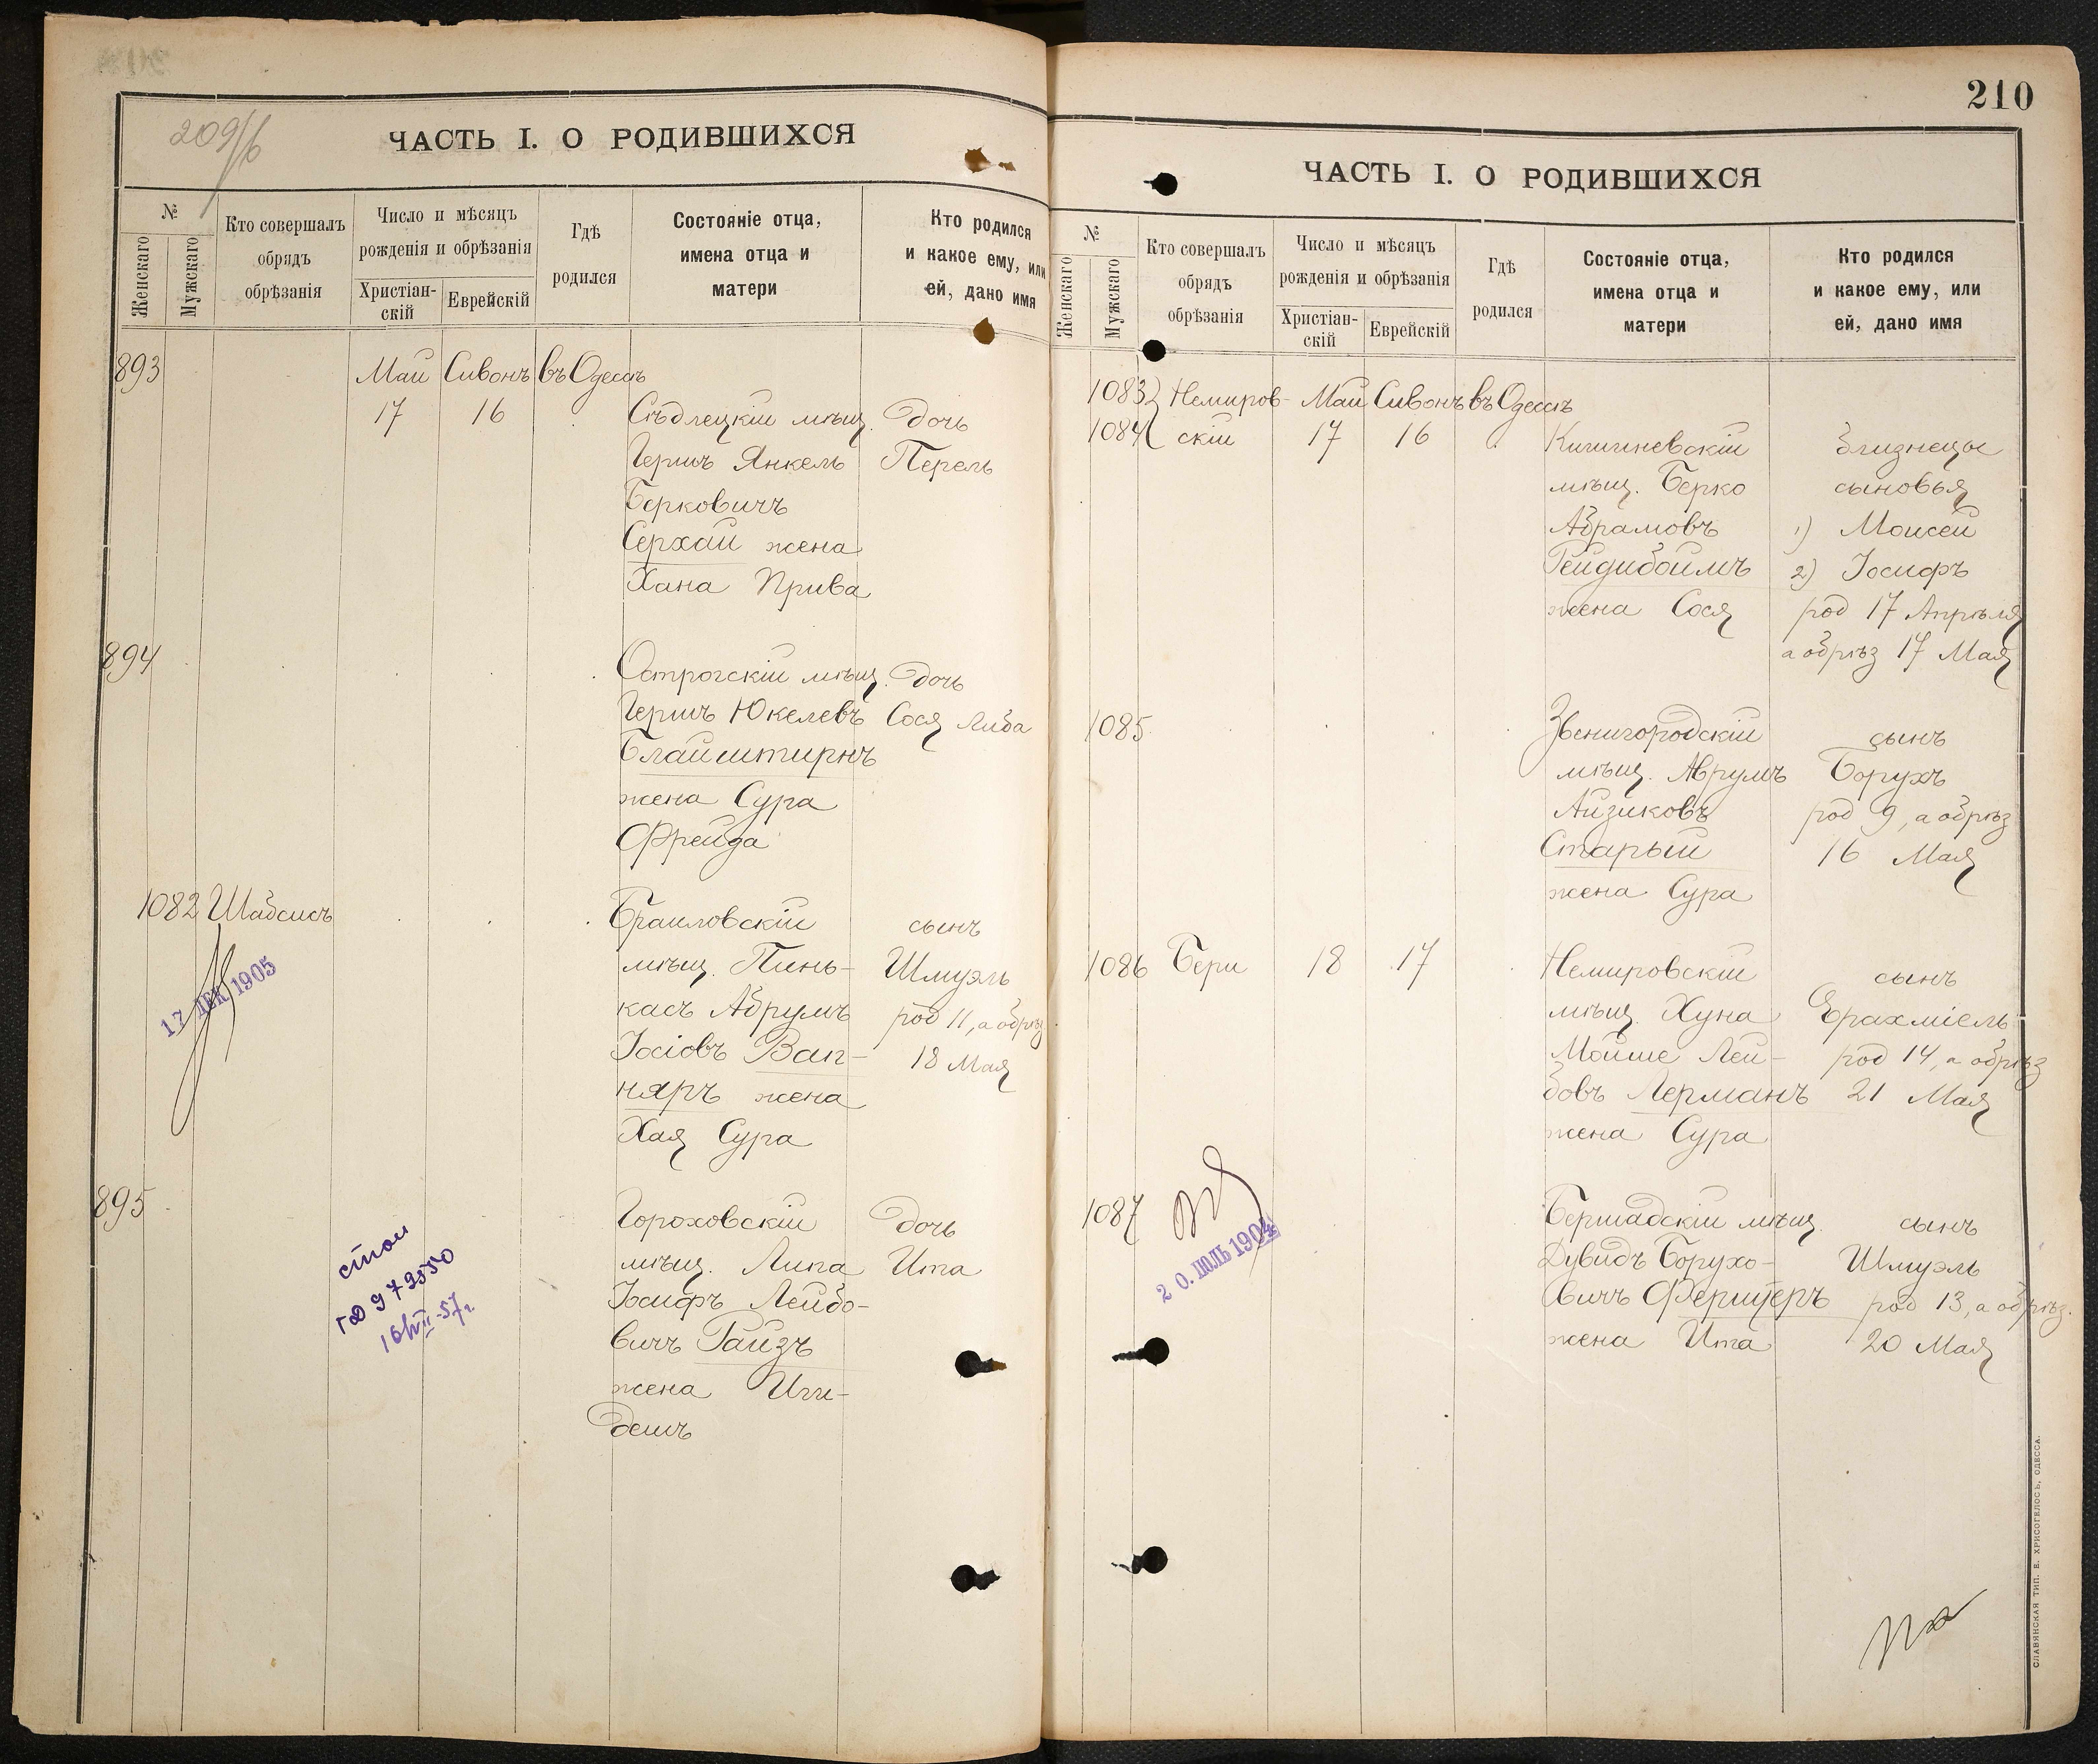 209/б
ЧАСТЬ I. О РОДИВШИХСЯ
№
Женскаго
Мужскаго
Кто совершалъ
обрядъ
обрѣзанія
Число и мѣсяцъ
рожденія и обрѣзанія
Христіан-
скій
Еврейскій
Гдѣ
родился
Состояніе отца,
имена отца и
матери
Кто родился
и какое ему, или
ей, дано имя
893
Май Сивонъ въ Одессѣ
17 16 Сѣдлецкій мѣщ. дочь
Гершъ Янкель Перель
Берковичъ
Серхай жена
Хана Прива
894
Острогскій мѣщ. дочь
Гершъ Юкелевъ Сося Либа
Блайштирнъ
жена Сура
Фрейда
1082 Шабсисъ Браиловскій сынъ
мѣщ. Пинь- Шмуэль
касъ Абрумъ род 11, а обрѣз
Іосіовъ Вап- 18 Мая
няръ жена
Хая Сура
17 ДЕК 1905
895
Гороховскій дочь
мѣщ. Липа Ита
Іосифъ Лейбо-
вичъ Гайзъ
жена Иги-
десъ
210
ЧАСТЬ I. О РОДИВШИХСЯ
№
Женскаго
Мужскаго
Кто совершалъ
обрядъ
обрѣзанія
Число и мѣсяцъ
рожденія и обрѣзанія
Христіан-
скій
Еврейскій
Гдѣ
родился
Состояніе отца,
имена отца и
матери
Кто родился
и какое ему, или
ей, дано имя
1083 Немиров- Май Сивонъ въ Одессѣ
1084 скій 17 16 Кишиневскій близнецы
мѣщ. Берко сыновья
Абрамовъ 1) Моисей
Гейдибоймъ 2) Іосифъ
жена Сося род 17 Апрѣля
а обрѣз 17 Мая
1085 Звенигородскій сынъ
мѣщ. Аврумъ Борухъ
Айзиковъ род 9, а обрѣз
Старый 16 Мая
жена Сура
1086 Бери 18 17 Немировскій сынъ
мѣщ. Хуна Ерахміель
Мойше Лей- род 14, а обрѣз
бовъ Лерманъ 21 Мая
жена Сура
1087 Бершадскій мѣщ. сынъ
Дувидъ Борухо- Шмуэль
вичъ Ферщеръ род 13, а обрѣз.
жена Ита 20 Мая
20. ІЮЛЬ 1904
СЛАВЯНСКАЯ ТИП. Е. ХРИСОГЕЛОСЪ, ОДЕССА.